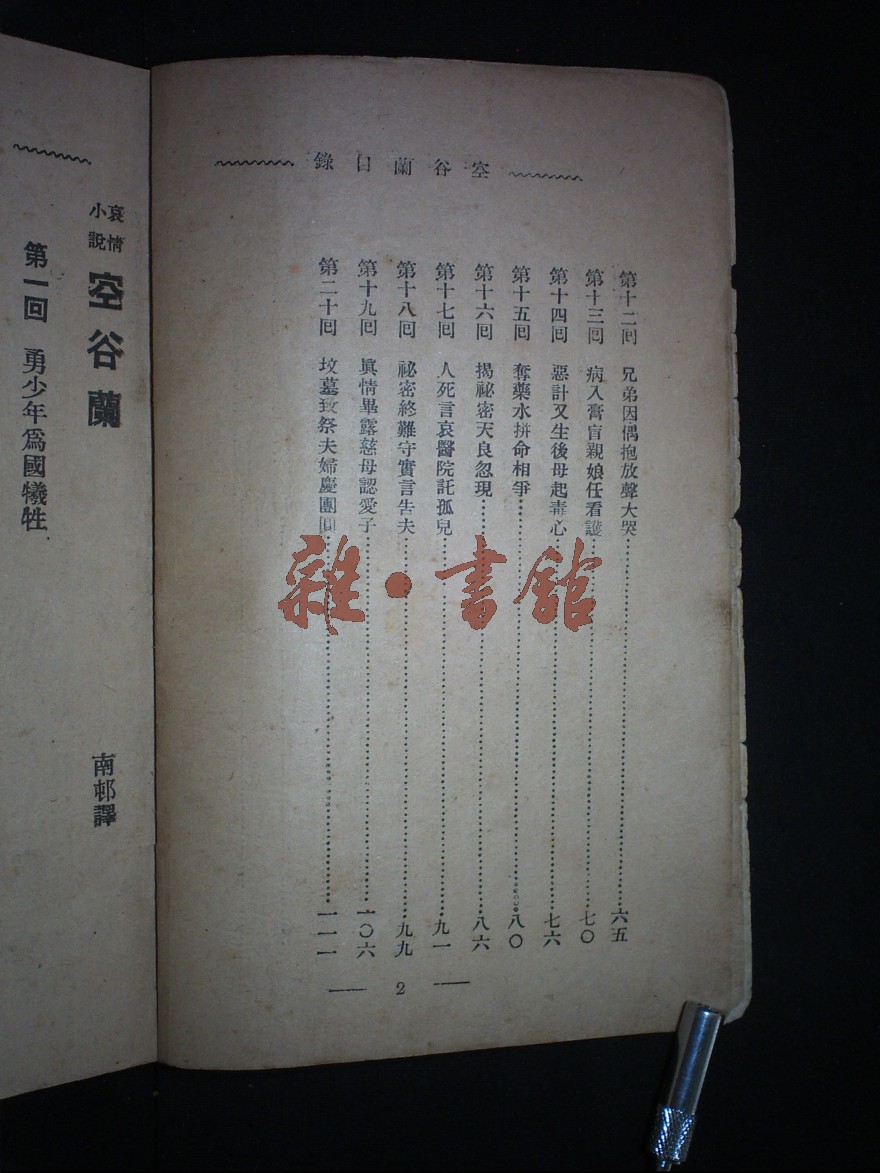 空谷蘭目錄
第十二囘 兄弟因偶抱放聲大哭……六五
第十三囘 病入膏盲親娘任看護……七〇
第十四囘 惡計又生後母起毒心……七六
第十五囘 奪藥水拼命相爭……八〇
第十六囘 揭祕密天良忽現……八六
第十七囘 人死言哀醫院託孤兒……九一
第十八囘 祕密終難守實言吿夫……九九
第十九囘 眞情畢露慈母認愛子……一〇六
第二十囘 坟墓致祭夫婦慶團圓……一一一
2
哀情小說 空谷蘭 南邨譯
第一囘 勇少年爲國犧牲
雜·書館